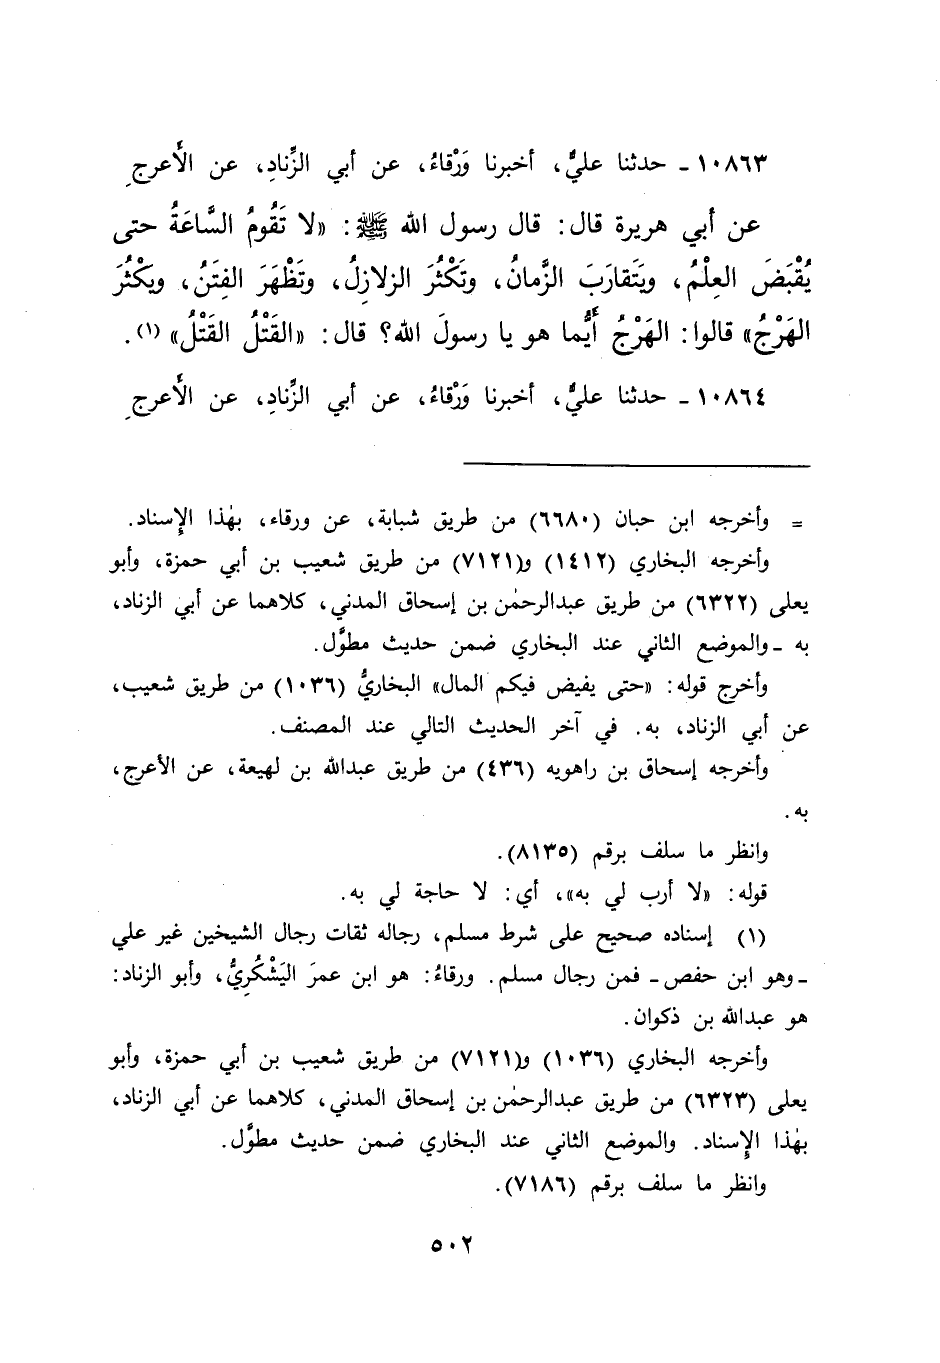 ١٠٨٦٣ ـ حدثنا عليٌّ، أخبرنا وَرْقاءُ، عن أبي الزِّنادِ، عن الأَعرجِ
عن أبي هريرة قال: قال رسول الله ﷺ: «لا تَقُومُ السَّاعَةُ حتى
يُقْبَضَ العِلْمُ، ويَتَقارَبَ الزَّمانُ، وتَكْثُرَ الزلازِلُ، وتَظْهَرَ الفِتَنُ، ويَكْثُرَ
الهَرْجُ» قالوا: الهَرْجُ أَيُّما هو يا رسولَ الله؟ قال: «القَتْلُ القَتْلُ» (١).
١٠٨٦٤ ـ حدثنا عليٌّ، أخبرنا وَرْقاءُ، عن أبي الزِّنادِ، عن الأَعرجِ
= وأخرجه ابن حبان (٦٦٨٠) من طريق شبابة، عن ورقاء، بهٰذا الإِسناد.
وأخرجه البخاري (١٤١٢) و(٧١٢١) من طريق شعيب بن أبي حمزة، وأبو
يعلى (٦٣٢٢) من طريق عبدالرحمٰن بن إسحاق المدني، كلاهما عن أبي الزناد،
به ـ والموضع الثاني عند البخاري ضمن حديث مطوَّل.
وأخرج قوله: «حتى يفيض فيكم المال» البخاريُّ (١٠٣٦) من طريق شعيب،
عن أبي الزناد، به. في آخر الحديث التالي عند المصنف.
وأخرجه إسحاق بن راهويه (٤٣٦) من طريق عبدالله بن لهيعة، عن الأعرج،
به.
وانظر ما سلف برقم (٨١٣٥).
قوله: «لا أرب لي به»، أي: لا حاجة لي به.
(١) إسناده صحيح على شرط مسلم، رجاله ثقات رجال الشيخين غير علي
ـ وهو ابن حفص ـ فمن رجال مسلم. ورقاءُ: هو ابن عمرَ اليَشْكُرِيُّ، وأبو الزناد:
هو عبدالله بن ذكوان.
وأخرجه البخاري (١٠٣٦) و(٧١٢١) من طريق شعيب بن أبي حمزة، وأبو
يعلى (٦٣٢٣) من طريق عبدالرحمٰن بن إسحاق المدني، كلاهما عن أبي الزناد،
بهٰذا الإِسناد. والموضع الثاني عند البخاري ضمن حديث مطوَّل.
وانظر ما سلف برقم (٧١٨٦).
٥٠٢